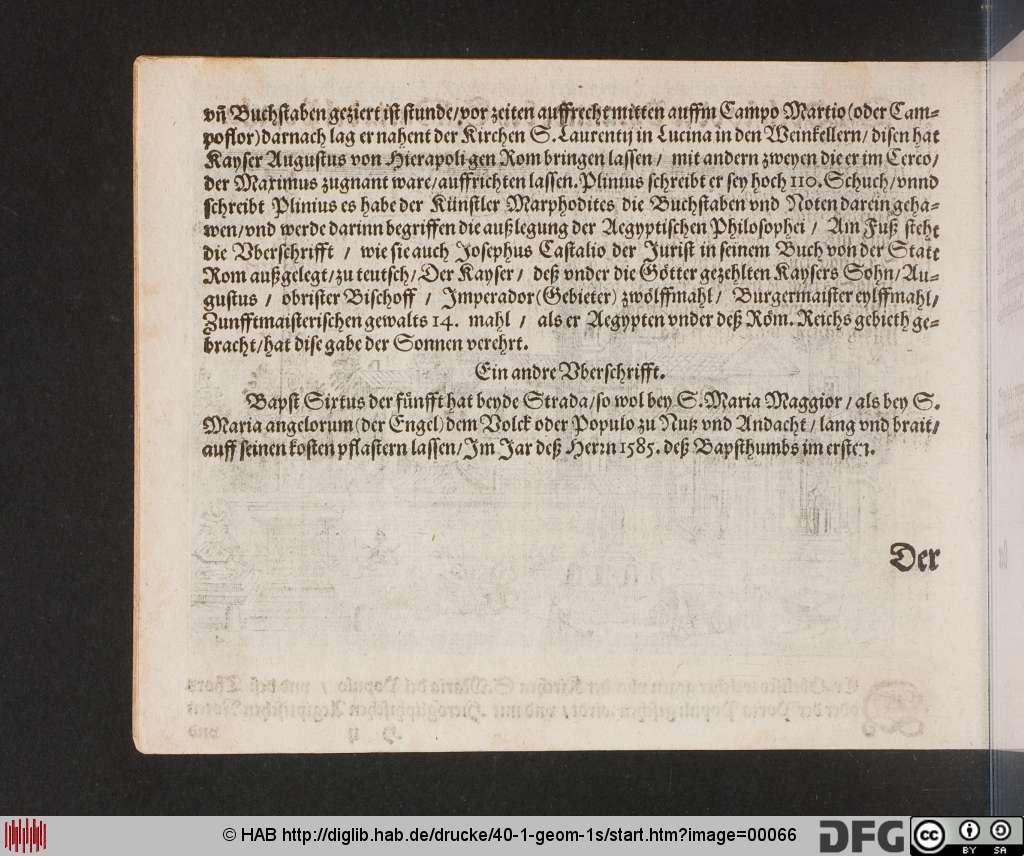 vñ Buchstaben geziert ist stunde/vor zeiten auffrecht mitten auffm Campo Martio (oder Cam-
poflor) darnach lag er nahent der Kirchen S. Laurentij in Lucina in den Weinkellern/ disen hat
Kayser Augustus von Hierapoli gen Rom bringen lassen/ mit andern zweyen die er im Cerco/
der Maximus zugnant ware/auffrichten lassen. Plinius schreibt er sey hoch 110. Schuch/vnnd
schreibt Plinius es habe der Künstler Marphodites die Buchstaben vnd Noten darein geha-
wen/vnd werde darinn begriffen die außlegung der Aegyptischen Philosophei/ Am Fuß steht
die Vberschrifft/ wie sie auch Josephus Castalio der Jurist in seinem Buch von der Statt
Rom außgelegt/zu teutsch/Der Kayser/ deß vnder die Götter gezehlten Kaysers Sohn/Au-
gustus/ obrister Bischoff/ Imperador (Gebieter) zwölffmahl/ Burgermaister eylffmahl/
Zunfftmaisterischen gewalts 14. mahl/ als er Aegypten vnder deß Röm. Reichs gebieth ge-
bracht/hat dise gabe der Sonnen verehrt.
Ein andre Vberschrifft.
Bapst Sixtus der fünfft hat beyde Strada/so wol bey S. Maria Maggior/als bey S.
Maria angelorum (der Engel) dem Volck oder Populo zu Nutz vnd Andacht/lang vnd brait/
auff seinen kosten pflastern lassen/Im Jar deß Herrn 1585. deß Bapsthumbs im ersten.
Der
© HAB http://diglib.hab.de/drucke/40-1-geom-1s/start.htm?image=00066
DFG
cc BY SA